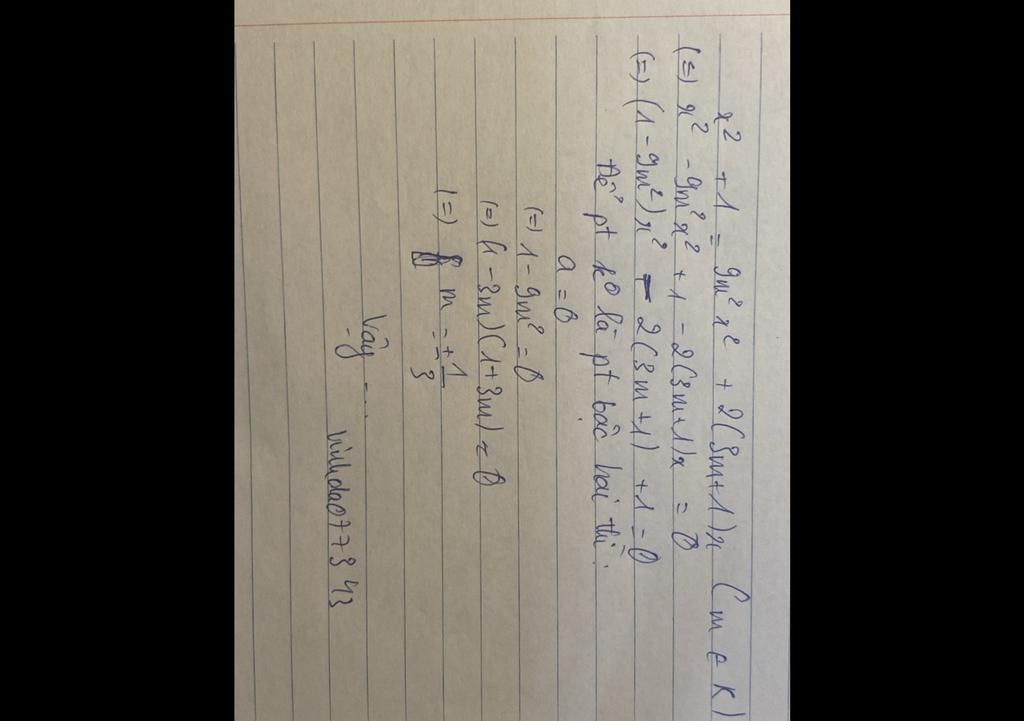 x² + 1 = 9m²x² + 2(3m+1)x (m ∈ R)
(=) x² - 9m²x² + 1 - 2(3m+1)x = 0
(=) (1 - 9m²)x² - 2(3m+1) + 1 = 0
Để pt k⁰ là pt bậc hai thì:
a = 0
(=) 1 - 9m² = 0
(=) (1 - 3m)(1 + 3m) = 0
(=) m = ±1/3
Vậy ...
vinhdao077343